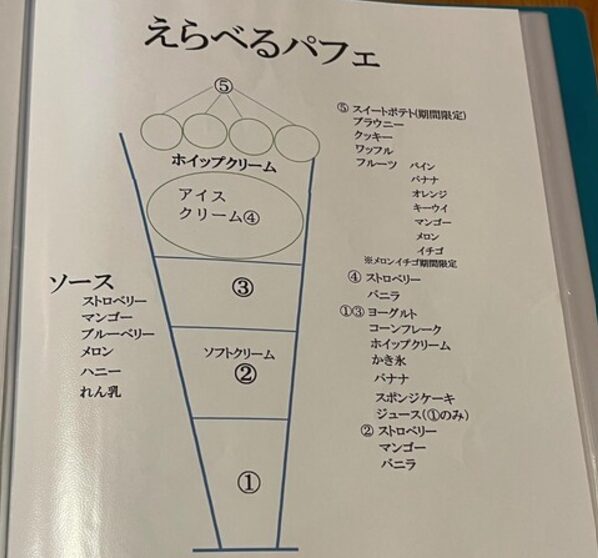 えらべるパフェ
⑤
ホイップクリーム
アイス
クリーム④
③
ソフトクリーム
②
①
ソース
ストロベリー
マンゴー
ブルーベリー
メロン
ハニー
れん乳
⑤ スイートポテト(期間限定)
ブラウニー
クッキー
ワッフル
フルーツ パイン
バナナ
オレンジ
キーウイ
マンゴー
メロン
イチゴ
※メロンイチゴ期間限定
④ ストロベリー
バニラ
①③ ヨーグルト
コーンフレーク
ホイップクリーム
かき氷
バナナ
スポンジケーキ
ジュース(①のみ)
② ストロベリー
マンゴー
バニラ